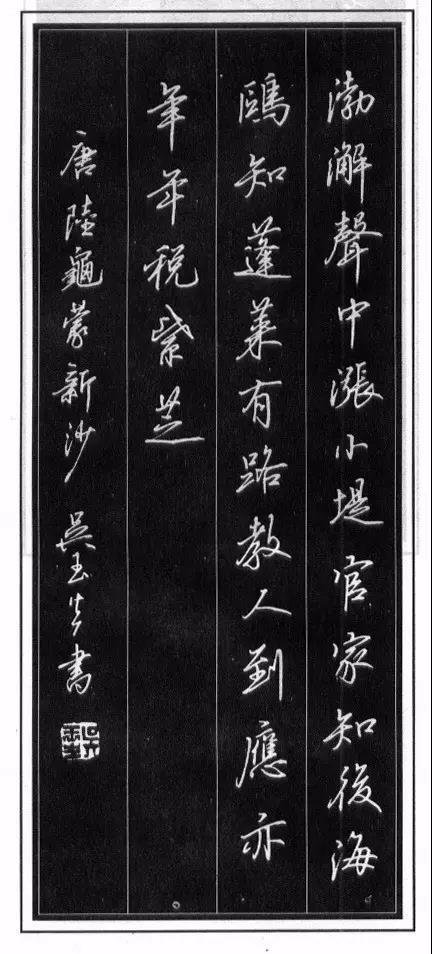 渤澥聲中漲小堤官家知後海
鷗知蓬萊有路教人到應亦
年年税紫芝
唐陸龜蒙新沙 吳玉生書